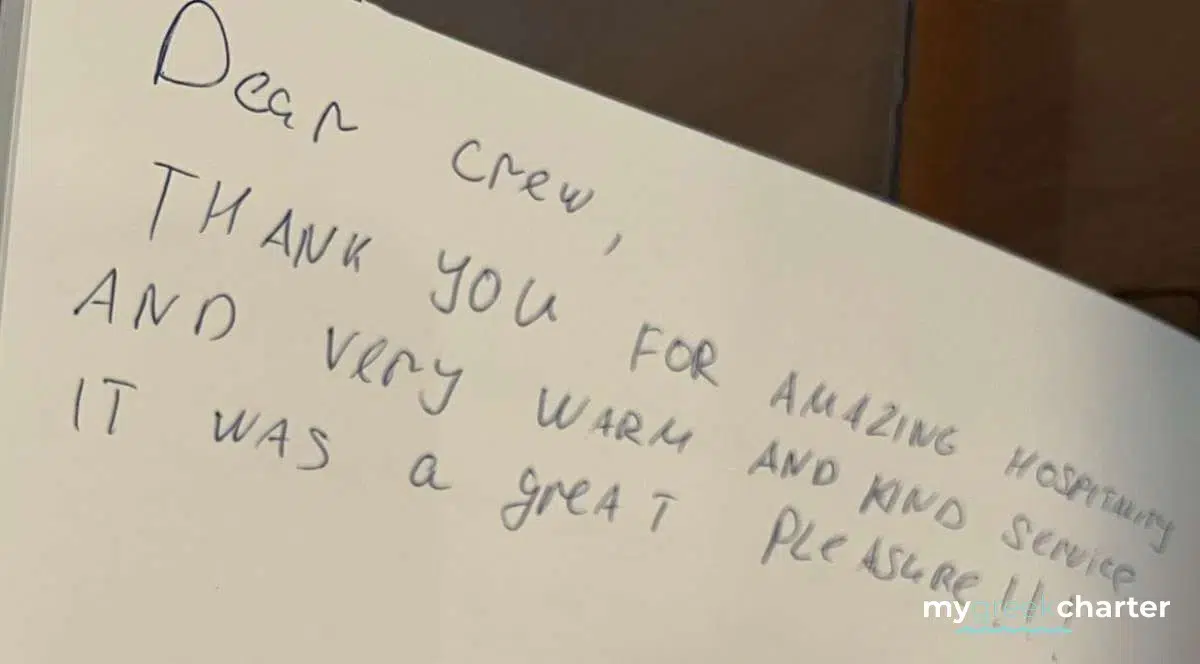 Dear crew,
THANK YOU FOR AMAZING HOSPITALITY
AND very WARM AND KIND service
IT WAS a greAT PLeASURe!!!
mygreekcharter